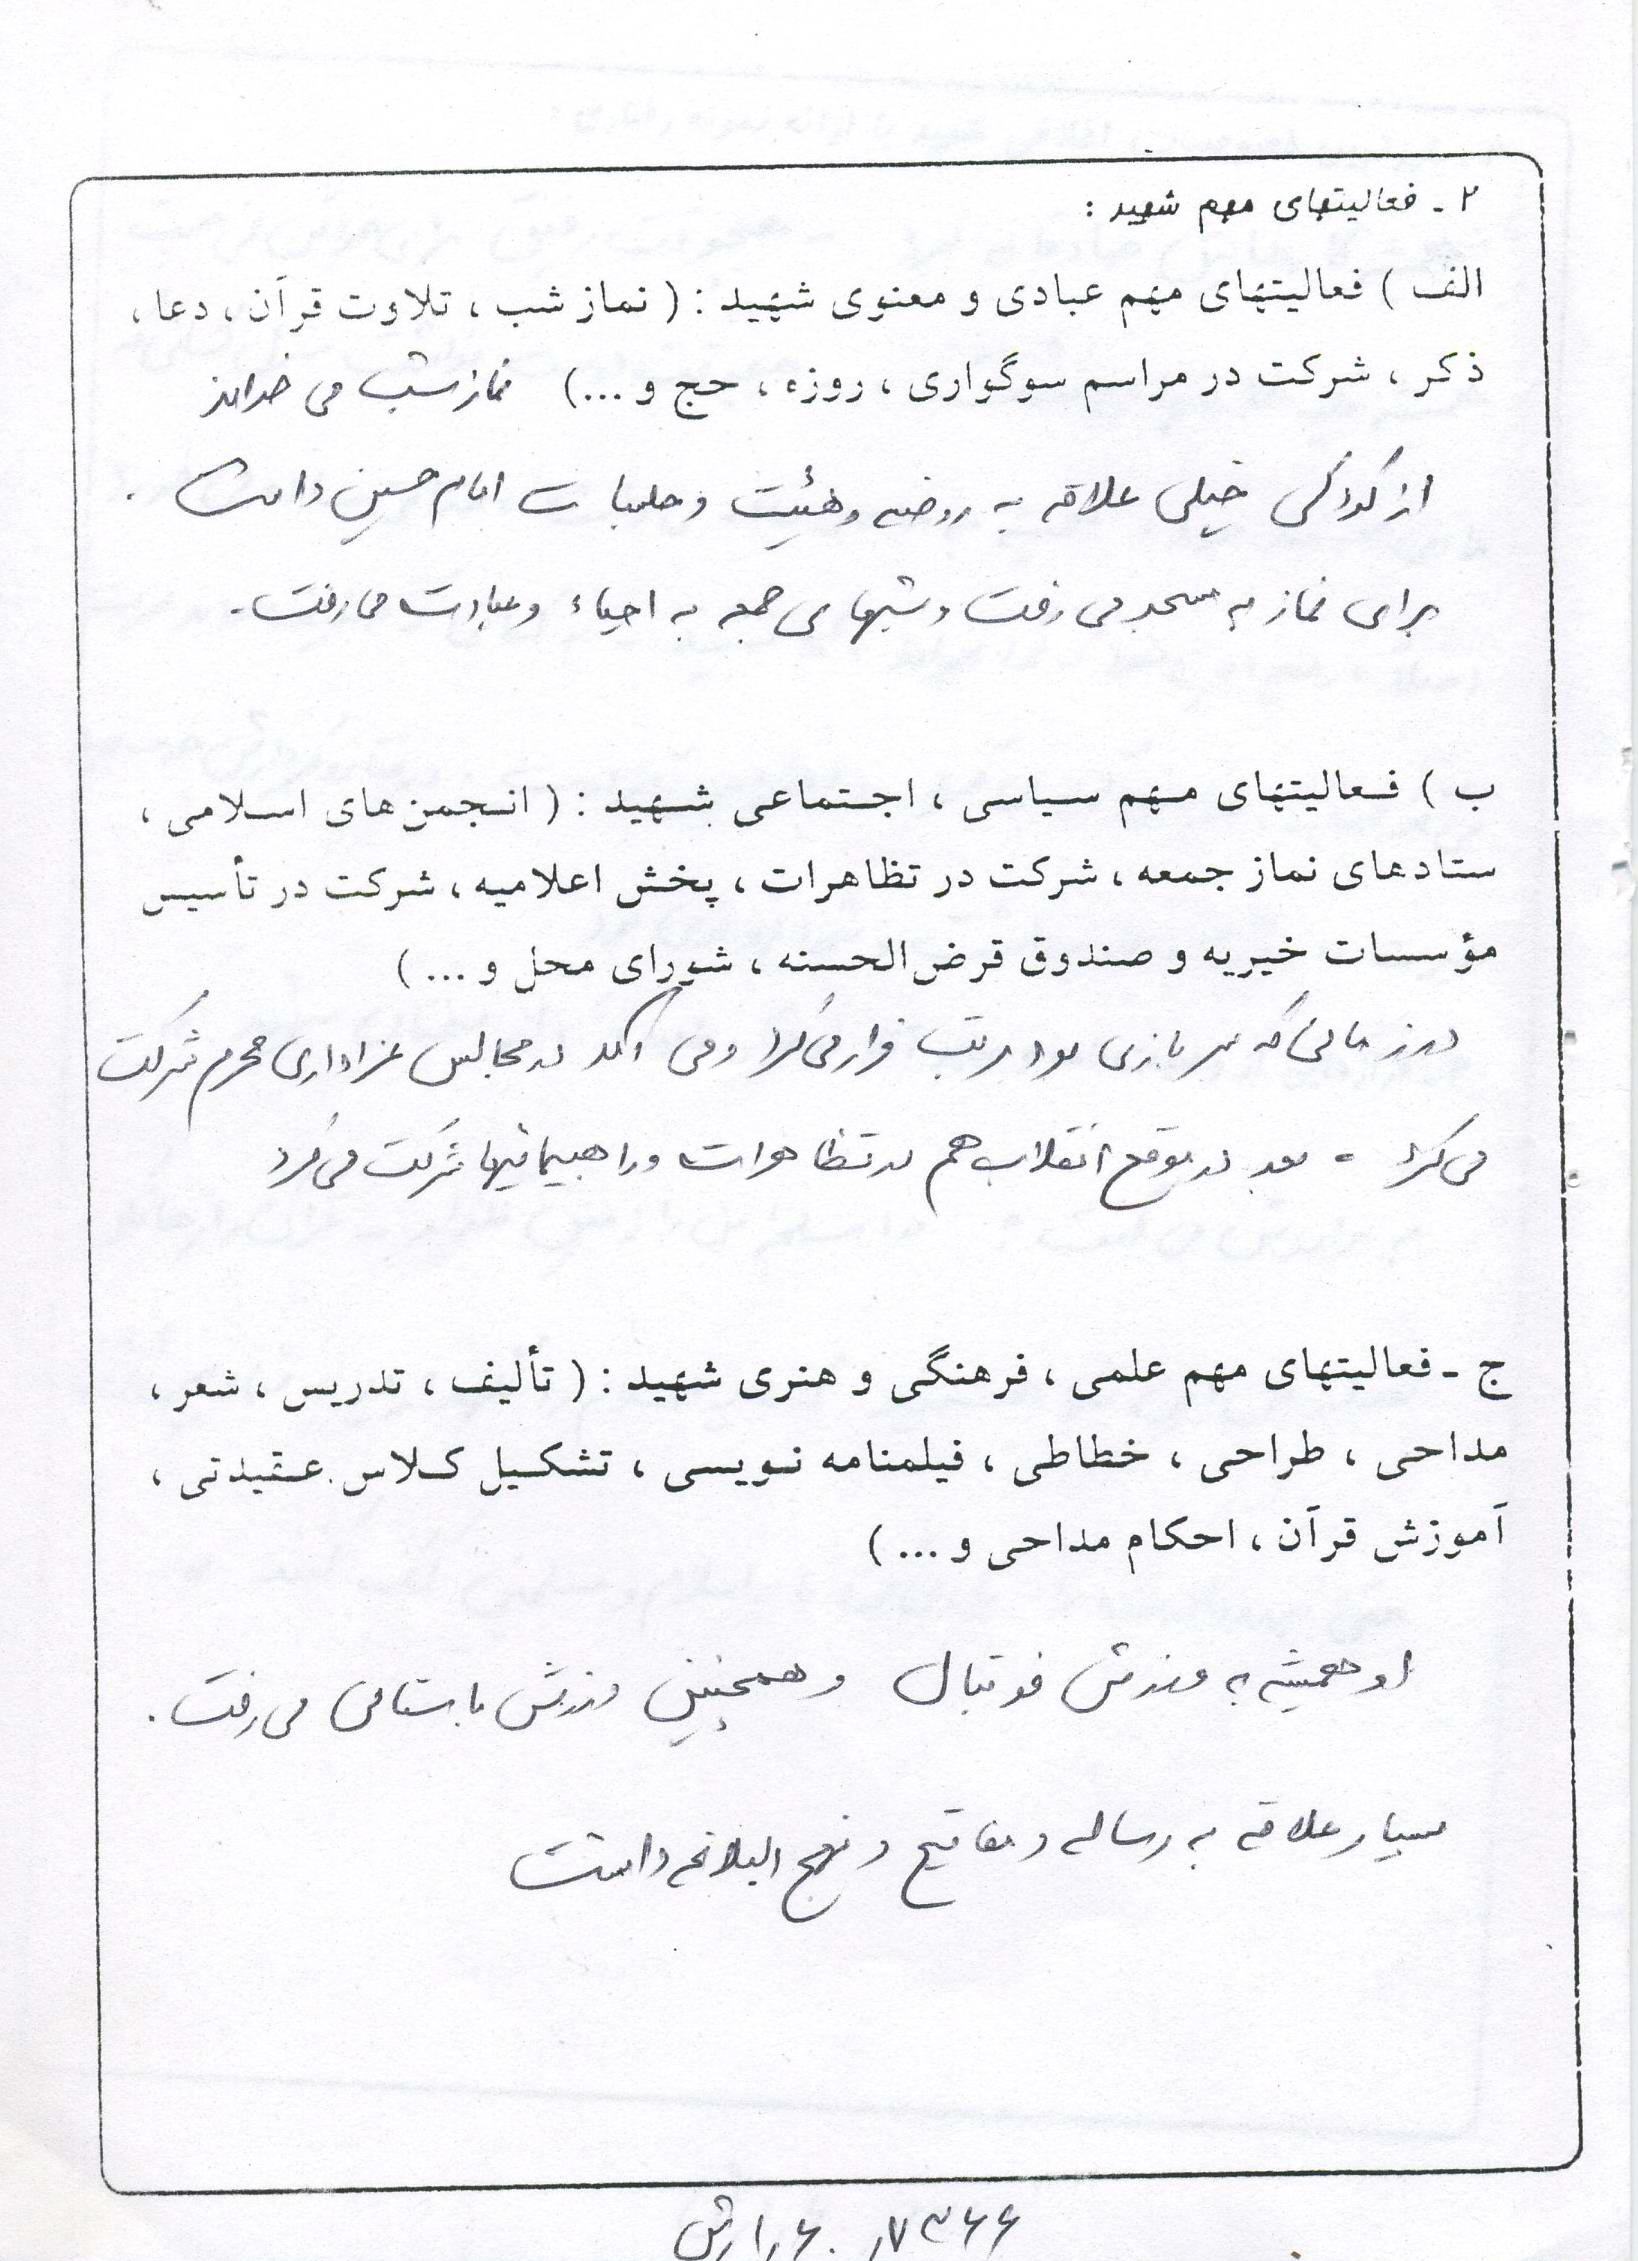 ۲ - فعالیتهای مهم شهید :
الف ) فعالیتهای مهم عبادی و معنوی شهید : ( نماز شب ، تلاوت قرآن ، دعا ،
ذکر ، شرکت در مراسم سوگواری ، روزه ، حج و ... ) نماز شب می خواند
از کودکی خیلی علاقه به روضه و هیئت و جلسات امام حسین داشت .
برای نماز به مسجد می رفت و شبهای جمعه به احیاء و عبادت می رفت .
ب ) فعالیتهای مهم سیاسی ، اجتماعی شهید : ( انجمن های اسلامی ،
ستادهای نماز جمعه ، شرکت در تظاهرات ، پخش اعلامیه ، شرکت در تأسیس
مؤسسات خیریه و صندوق قرض الحسنه ، شورای محل و ... )
در زمانی که سربازی بود مرتب فرار می کرد و می آمد در مجالس عزاداری محرم شرکت
می کرد - بعد در موقع انقلاب هم در تظاهرات و راهپیمائیها شرکت می کرد
ج - فعالیتهای مهم علمی ، فرهنگی و هنری شهید : ( تألیف ، تدریس ، شعر ،
مداحی ، طراحی ، خطاطی ، فیلمنامه نویسی ، تشکیل کلاس عقیدتی ،
آموزش قرآن ، احکام مداحی و ... )
او همیشه به ورزش فوتبال و همچنین ورزش باستانی می رفت .
بسیار علاقه به رساله و مفاتیح و نهج البلاغه داشت